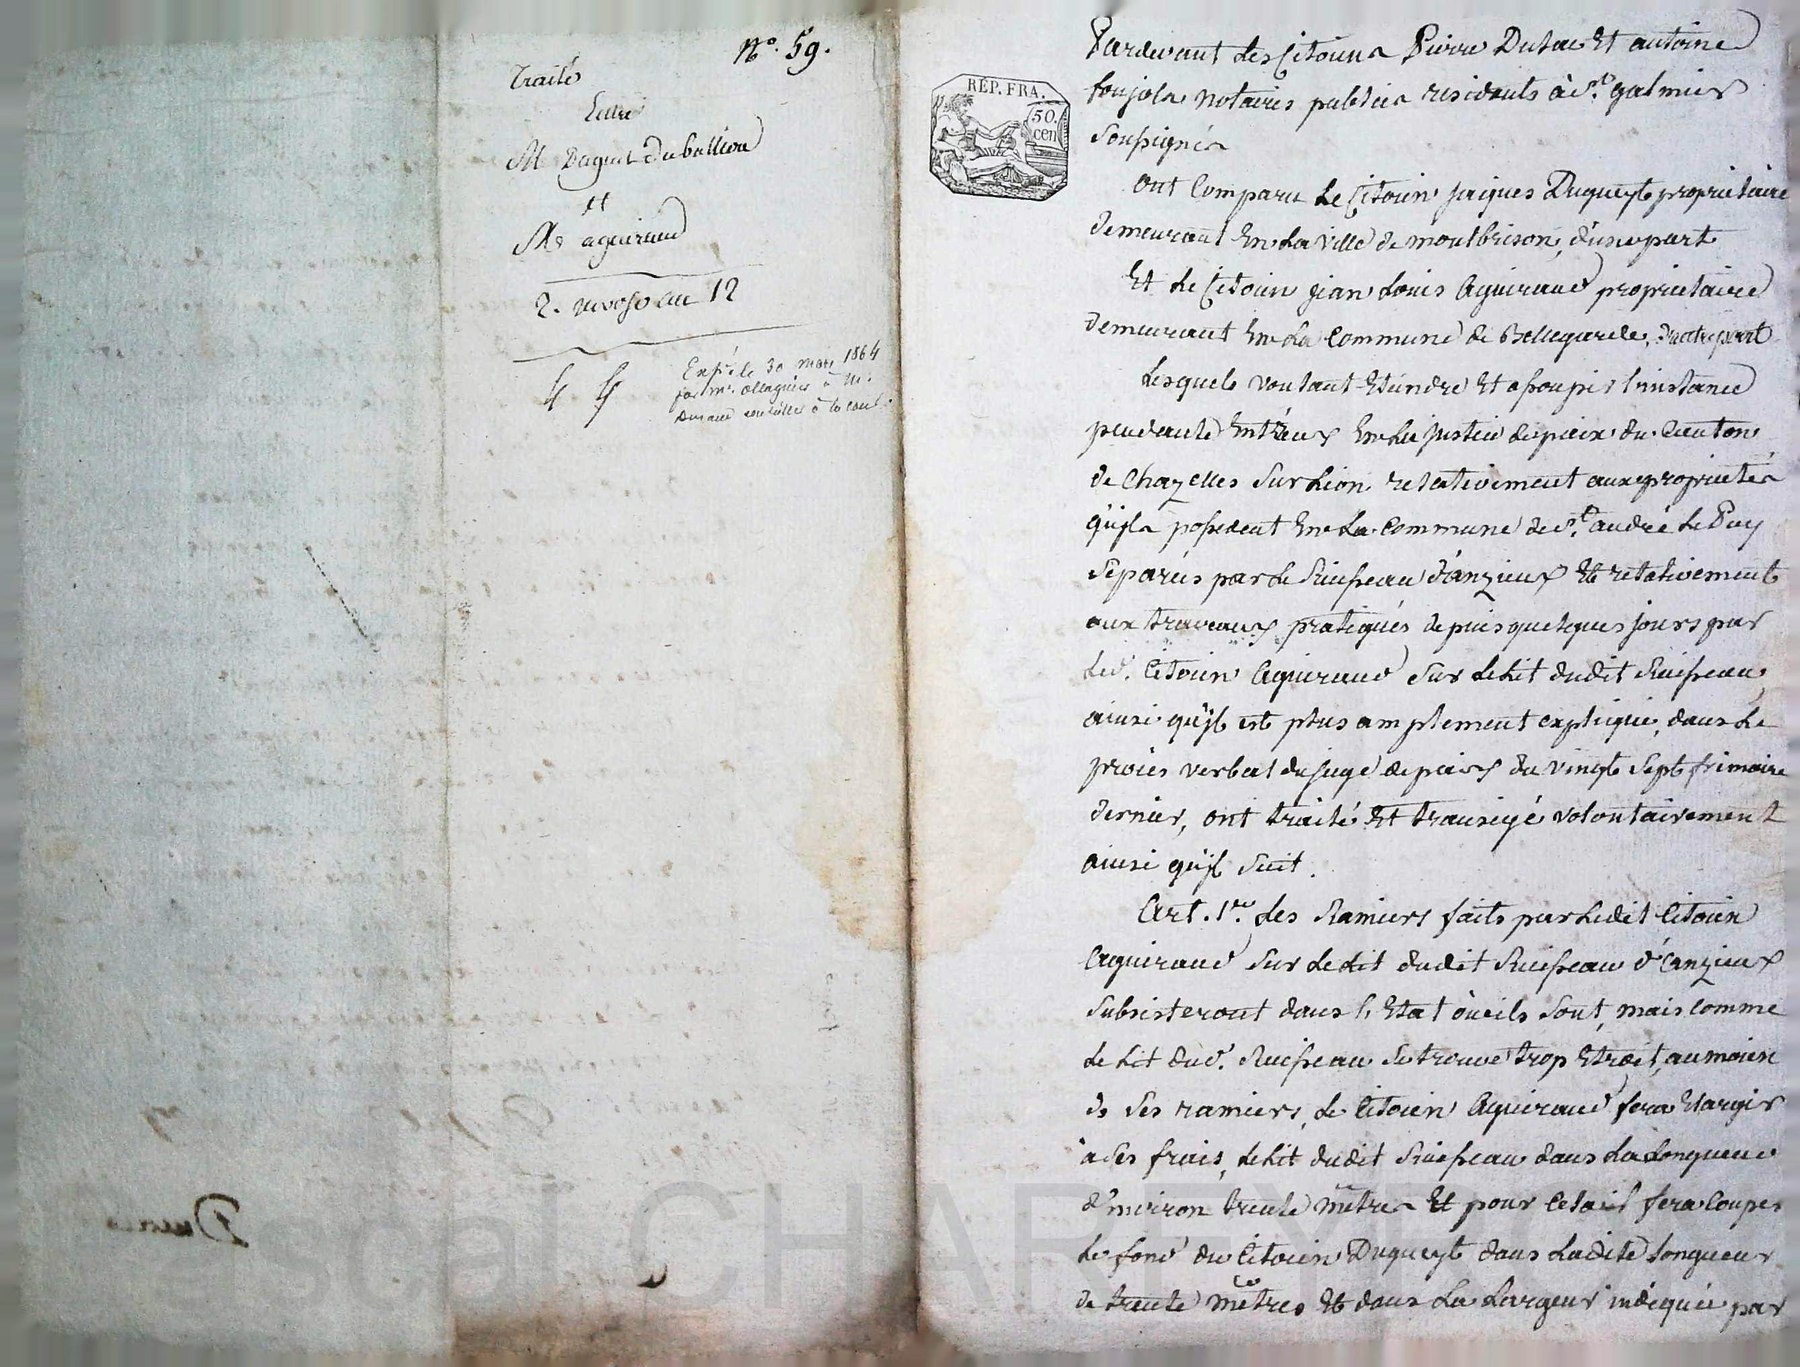 N.° 59.
Traité
Entre
M Duguet du bullion
et
Mr aguiraud
2. nivose an 12
Exp.é le 30 mars 1864
par Mr.
conseiller à la cour
REP. FRA.
50.
cen
Pardevant Les Citoiens Pierre Dulac Et antoine
foujols Notaires publics residents à St. galmier
Soussignés
ont Comparu Le Citoien jaiques Dugueyt proprietaire
demeurant En La ville de montbrison, d'une part
Et Le Citoien jean Louis Aguiraud proprietaire
demeurant En La Commune de Bellegarde, d'autre part
Lesquels voulant Eteindre Et assoupir l'instance
pendante Entr'eux En La justice de paix du Canton
de Chazelles Sur Lion relativement aux proprietés
qu'ils possedent En La Commune de St. andré Le Puy
Séparées par Le Ruisseau d'anzieux Et relativement
aux travaux pratiqués depuis quelques jours par
Led. Citoien Aguiraud Sur Le Lit dudit Ruisseau,
ainsi qu'il est plus amplement expliqué, dans Le
procès verbal du juge de paix du vingt Sept frimaire
dernier, ont traité Et transigé volontairement
ainsi qu'il Suit.
Art. 1er. Les Ramiers faits par Ledit Citoien
Aguiraud Sur Le Lit dudit Ruisseau d'anzieux
Subsisteront dans l'Etat où ils Sont, mais Comme
Le Lit dud. Ruisseau Se trouve trop Etroit, au moien
de Ses ramiers, Le Citoien Aguiraud fera Elargir
à Ses frais, Le Lit dudit Ruisseau dans La Longueur
d'environ trente mêtres Et pour Cela il fera Couper
Le fond du Citoien Dugueyt dans Ladite Longueur
de trente mêtres Et dans La Largeur indiquée par
CHAR